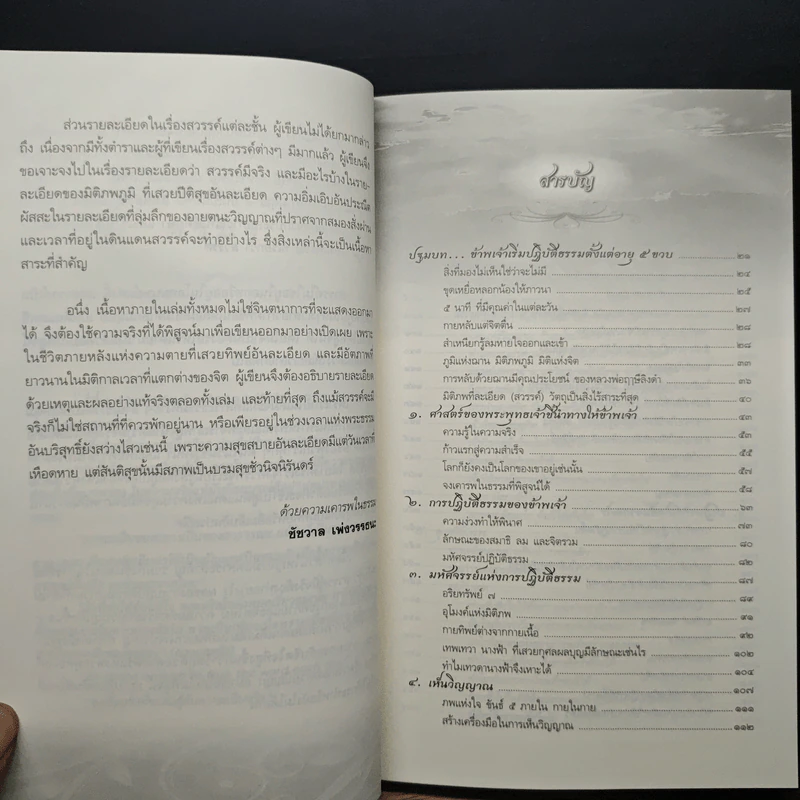 ส่วนรายละเอียดในเรื่องสวรรค์แต่ละชั้น ผู้เขียนไม่ได้ยกมากล่าว
ถึง เนื่องจากมีทั้งตำราและผู้ที่เขียนเรื่องสวรรค์ต่างๆ มีมากแล้ว ผู้เขียนจึง
ขอเจาะจงไปในเรื่องรายละเอียดว่า สวรรค์มีจริง และมีอะไรบ้างในราย-
ละเอียดของมิติภพภูมิ ที่เสวยปีติสุขอันละเอียด ความอิ่มเอิบอันประณีต
ผัสสะในรายละเอียดที่ลุ่มลึกของอายตนะวิญญาณที่ปราศจากสมองสั่งผ่าน
และเวลาที่อยู่ในดินแดนสวรรค์จะทำอย่างไร ซึ่งสิ่งเหล่านี้จะเป็นเนื้อหา
สาระที่สำคัญ
อนึ่ง เนื้อหาภายในเล่มทั้งหมดไม่ใช่จินตนาการที่จะแสดงออกมา
ได้ จึงต้องใช้ความจริงที่ได้พิสูจน์มาเพื่อเขียนออกมาอย่างเปิดเผย เพราะ
ในชีวิตภายหลังแห่งความตายที่เสวยทิพย์อันละเอียด และมีอัตภาพที่
ยาวนานในมิติกาลเวลาที่แตกต่างของจิต ผู้เขียนจึงต้องอธิบายรายละเอียด
ด้วยเหตุและผลอย่างแท้จริงตลอดทั้งเล่ม และท้ายที่สุด ถึงแม้สวรรค์จะมี
จริงก็ไม่ใช่สถานที่ที่ควรพักอยู่นาน หรือเพียรอยู่ในช่วงเวลาแห่งพระธรรม
อันบริสุทธิ์ยังสว่างไสวเช่นนี้ เพราะความสุขสบายอันละเอียดมีแต่วันเวลาที่
เหือดหาย แต่สันติสุขนั้นมีสภาพเป็นบรมสุขชั่วนิจนิรันดร์
ด้วยความเคารพในธรรม
ชัชวาล เพ่งวรรธนะ
สารบัญ
ปฐมบท... ข้าพเจ้าเริ่มปฏิบัติธรรมตั้งแต่อายุ ๕ ขวบ ๒๑
สิ่งที่มองไม่เห็นใช่ว่าจะไม่มี ๒๔
ขุดเหยื่อหลอกน้องให้ภาวนา ๒๕
๕ นาที ที่มีคุณค่าในแต่ละวัน ๒๗
กายหลับแต่จิตตื่น ๒๘
สำเหนียกรู้ลมหายใจออกและเข้า ๒๘
ภูมิแห่งฌาน มิติภพภูมิ มิติแห่งจิต ๓๓
การหลับด้วยฌานมีคุณประโยชน์ ของหลวงพ่อฤๅษีลิงดำ ๓๖
มิติภพที่ละเอียด (สวรรค์) วัตถุเป็นสิ่งไร้สาระที่สุด ๔๐
๑. ศาสตร์ของพระพุทธเจ้าชี้นำทางให้ข้าพเจ้า ๔๓
ความรู้ในความจริง ๕๓
ก้าวแรกสู่ความสำเร็จ ๕๕
โลกก็ยังคงเป็นโลกของเขาอยู่เช่นนั้น ๕๗
จงเคารพในธรรมที่พิสูจน์ได้ ๕๘
๒. การปฏิบัติธรรมของข้าพเจ้า ๖๓
ความง่วงทำให้พินาศ ๗๓
ลักษณะของสมาธิ ลม และจิตรวม ๘๐
มหัศจรรย์ปฏิบัติธรรม ๘๒
๓. มหัศจรรย์แห่งการปฏิบัติธรรม ๘๗
อริยทรัพย์ ๗ ๘๙
อุโมงค์แห่งมิติภพ ๙๑
กายทิพย์ต่างจากกายเนื้อ ๙๒
เทพเทวา นางฟ้า ที่เสวยกุศลผลบุญมีลักษณะเช่นไร ๑๐๒
ทำไมเทวดานางฟ้าจึงเหาะได้ ๑๐๔
๔. เห็นวิญญาณ ๑๐๗
ภพแห่งใจ ขันธ์ ๕ ภายใน กายในกาย ๑๑๑
สร้างเครื่องมือในการเห็นวิญญาณ ๑๑๒